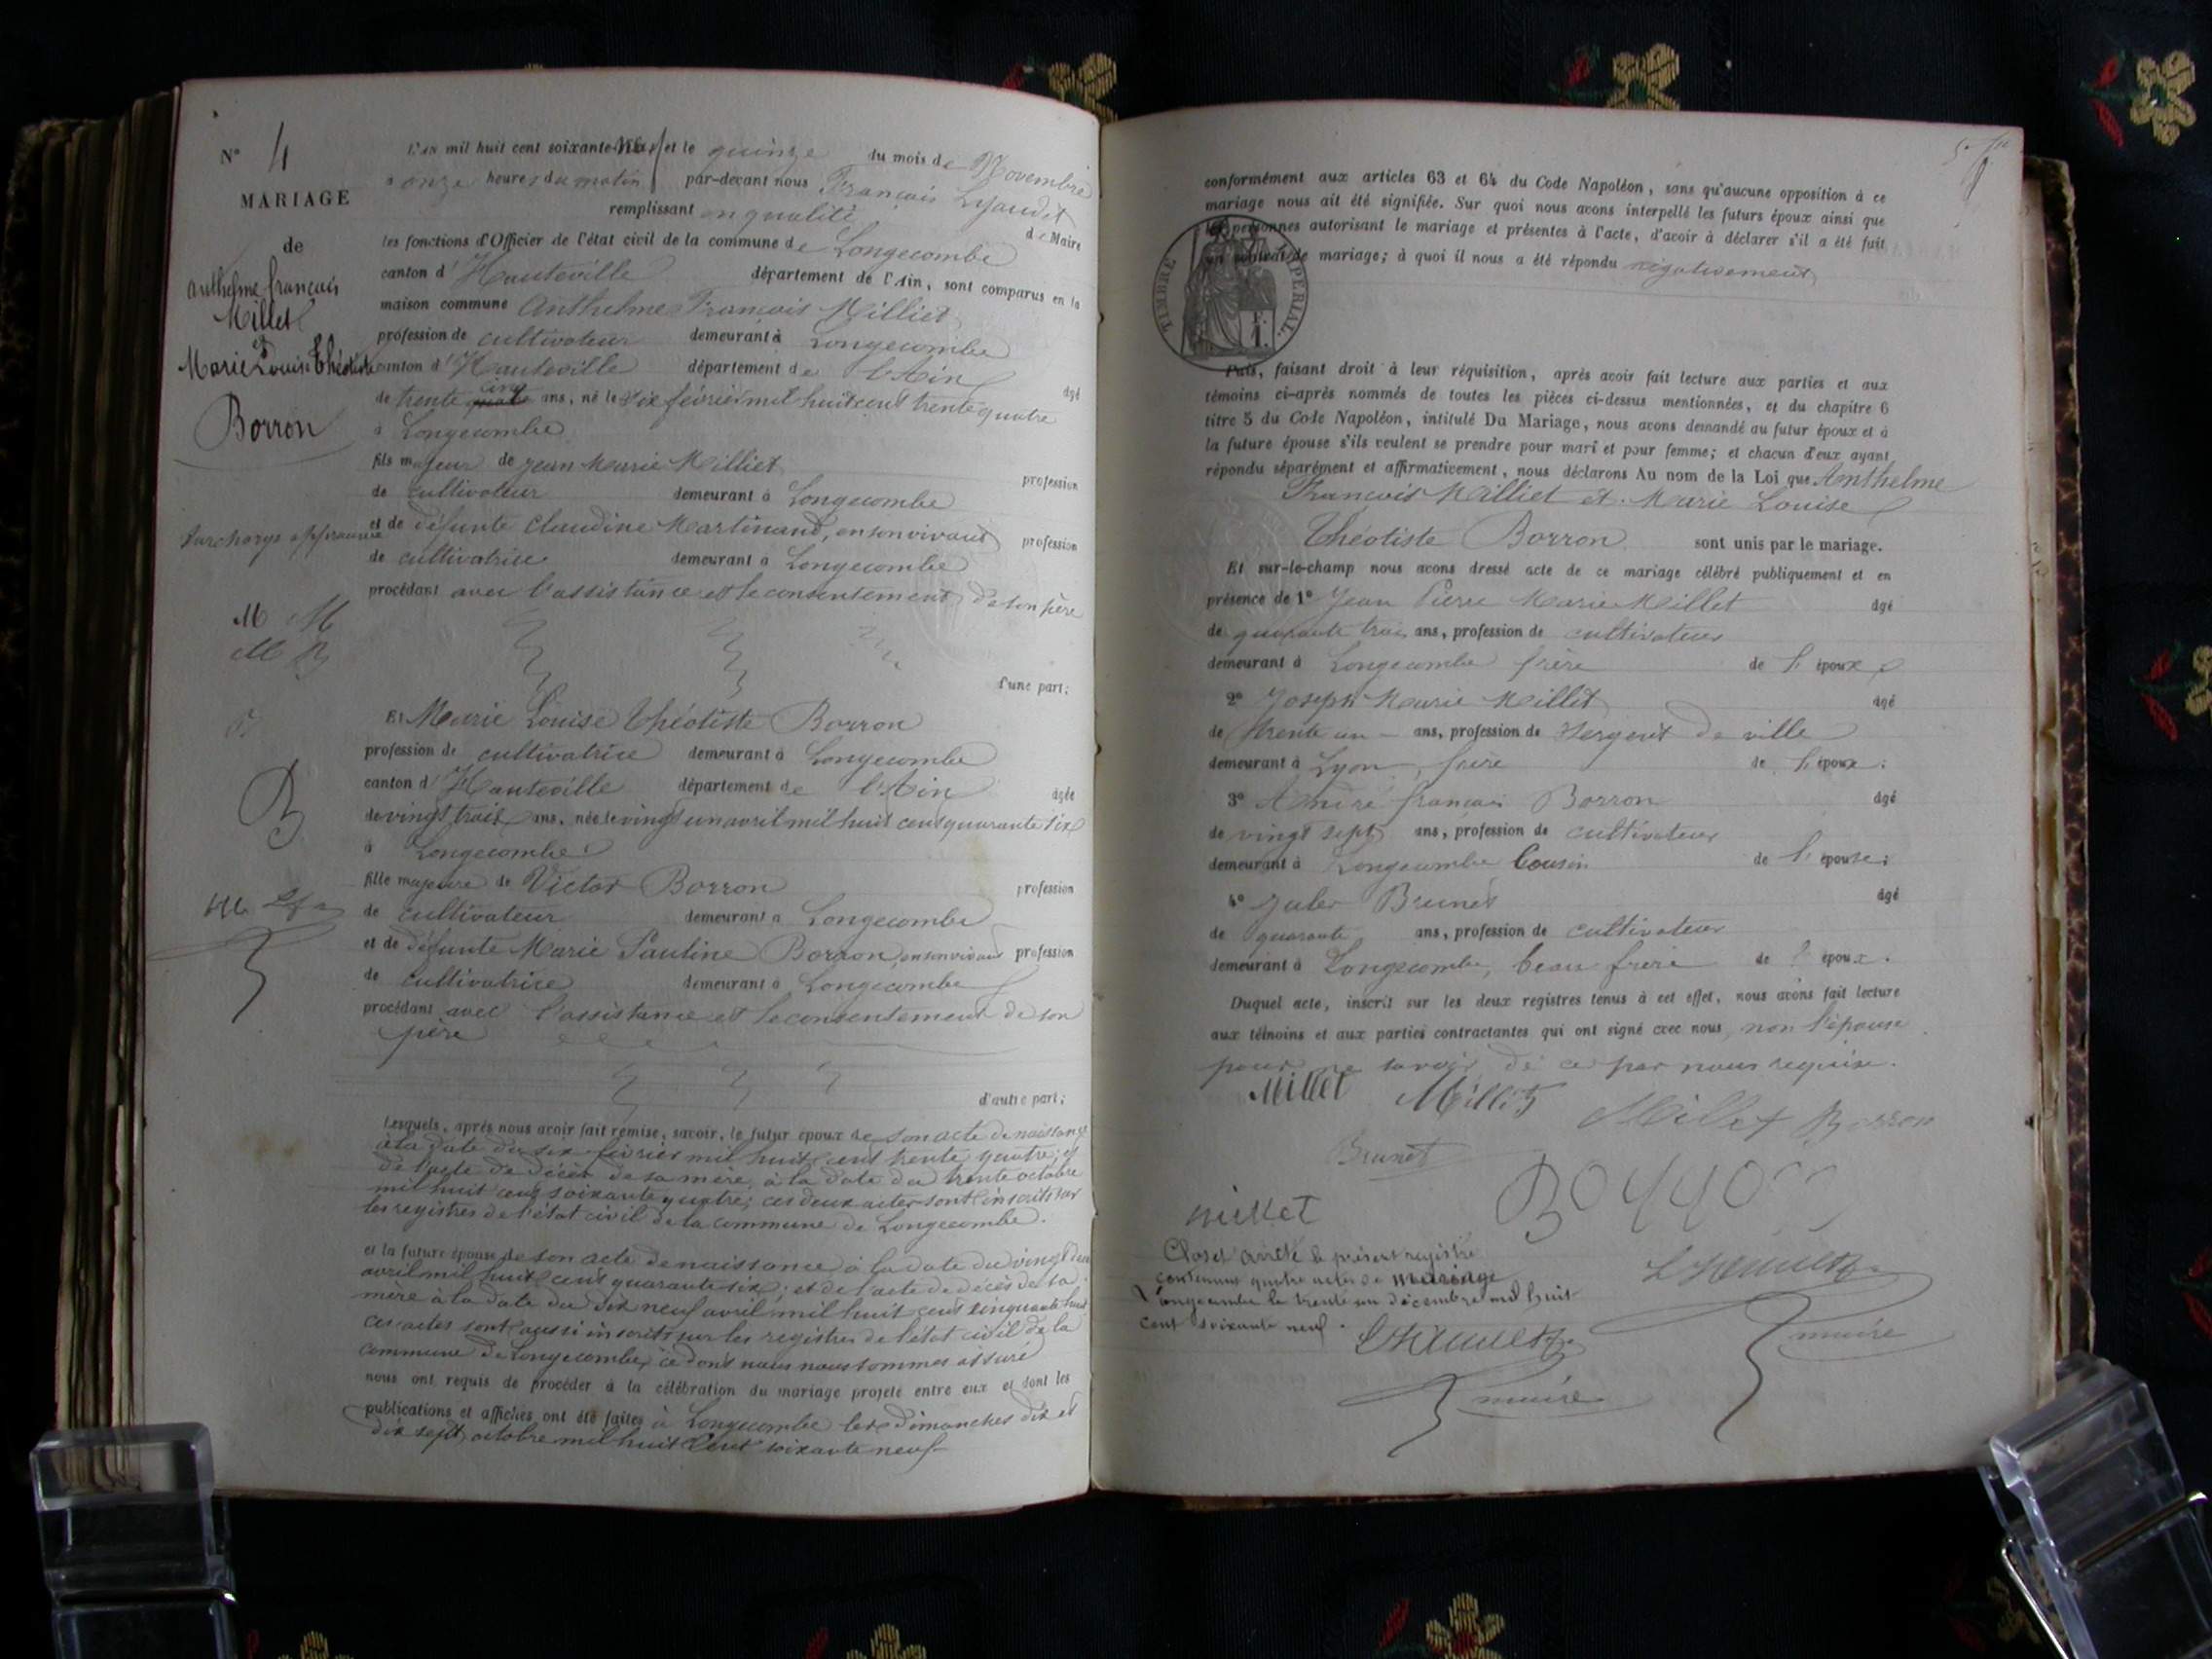 N° 4
MARIAGE
de
Anthelme français
Millet
et
Marie Louise Théotiste
Borron
surcharge approuvée
M M
M B
B
L'AN mil huit cent soixante-neuf et le quinze du mois de Novembre
à onze heures du matin par-devant nous François Lyaudet
remplissant en qualité de Maire
les fonctions d'Officier de l'état civil de la commune de Longecombe
canton d'Hauteville département de l'Ain, sont comparus en la
maison commune Anthelme François Milliet
profession de cultivateur demeurant à Longecombe
canton d'Hauteville département de l'Ain âgé
de trente cinq ans, né le six février mil huit cent trente quatre
à Longecombe
fils majeur de Jean Marie Milliet profession
de cultivateur demeurant à Longecombe
et de défunte Claudine Martinand, en son vivant profession
de cultivatrice demeurant à Longecombe
procédant avec l'assistance et le consentement de son père
d'une part;
Et Marie Louise Théotiste Borron
profession de cultivatrice demeurant à Longecombe
canton d'Hauteville département de l'Ain âgée
de vingt trois ans, née le vingt un avril mil huit cent quarante six
à Longecombe
fille majeure de Victor Borron profession
de cultivateur demeurant à Longecombe
et de défunte Marie Pauline Borron, en son vivant profession
de cultivatrice demeurant à Longecombe
procédant avec l'assistance et le consentement de son
père
d'autre part;
Lesquels, après nous avoir fait remise, savoir, le futur époux de son acte de naissance
à la date du six février mil huit cent trente quatre; et
de l'acte de décès de sa mère, à la date du trente octobre
mil huit cent soixante quatre; ces deux actes sont inscrits sur
les registres de l'état civil de la commune de Longecombe.
et la future épouse de son acte de naissance à la date du vingt
avril mil huit cent quarante six; et de l'acte de décès de sa
mère à la date du dix neuf avril mil huit cent cinquante huit
ces actes sont aussi inscrits sur les registres de l'état civil de la
commune de Longecombe, ce dont nous nous sommes assuré
nous ont requis de procéder à la célébration du mariage projeté entre eux et dont les
publications et affiches ont été faites à Longecombe les dimanches dix et
dix sept octobre mil huit cent soixante neuf
conformément aux articles 63 et 64 du Code Napoléon, sans qu'aucune opposition à ce
mariage nous ait été signifiée. Sur quoi nous avons interpellé les futurs époux ainsi que
les personnes autorisant le mariage et présentes à l'acte, d'avoir à déclarer s'il a été fait
un contrat de mariage; à quoi il nous a été répondu négativement
TIMBRE IMPERIAL.
1 F.
Puis, faisant droit à leur réquisition, après avoir fait lecture aux parties et aux
témoins ci-après nommés de toutes les pièces ci-dessus mentionnées, et du chapitre 6
titre 5 du Code Napoléon, intitulé Du Mariage, nous avons demandé au futur époux et à
la future épouse s'ils veulent se prendre pour mari et pour femme; et chacun d'eux ayant
répondu séparément et affirmativement, nous déclarons Au nom de la Loi que Anthelme
François Milliet et Marie Louise
Théotiste Borron sont unis par le mariage.
Et sur-le-champ nous avons dressé acte de ce mariage célébré publiquement et en
présence de 1° Jean Pierre Marie Millet âgé
de quarante trois ans, profession de cultivateur
demeurant à Longecombe frère de l'époux
2° Joseph Marie Millet âgé
de trente un ans, profession de Sergent de ville
demeurant à Lyon, frère de l'époux;
3° André français Borron âgé
de vingt sept ans, profession de cultivateur
demeurant à Longecombe Cousin de l'épouse;
4° Jules Brunet âgé
de quarante ans, profession de cultivateur
demeurant à Longecombe, beau frère de l'époux.
Duquel acte, inscrit sur les deux registres tenus à cet effet, nous avons fait lecture
aux témoins et aux parties contractantes qui ont signé avec nous, non l'épouse
pour ne savoir de ce par nous requise.
Millet Milliet Millet Borron
Brunet Borron
millet
Clos et arrêté le présent registre
contenant quatre actes de mariage
Longecombe le trente un décembre mil huit
cent soixante neuf.
maire
maire